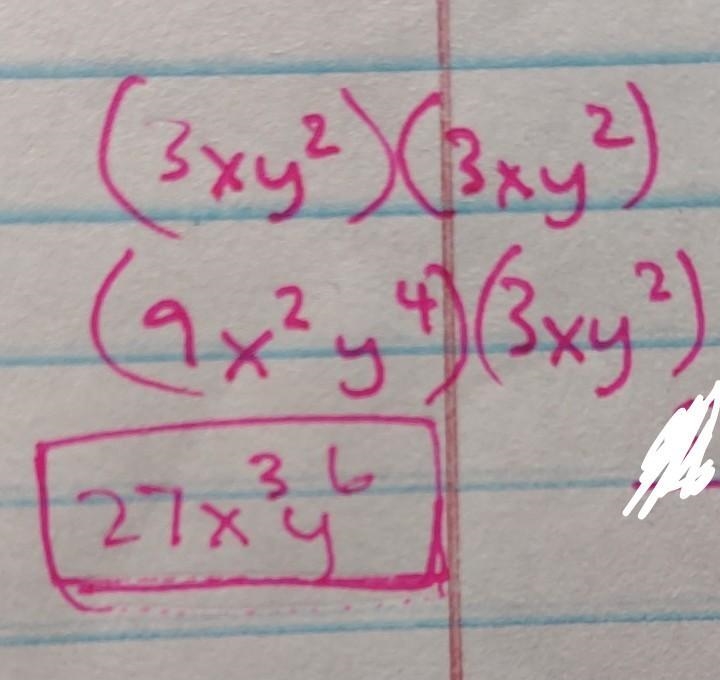 (3xy²)(3xy²)
(9x²y⁴)(3xy²)
27x³y⁶